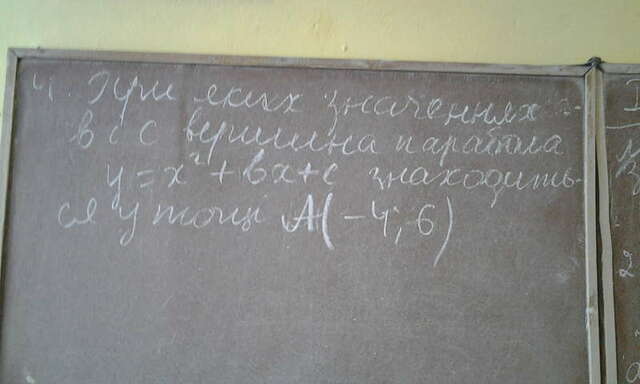 4. При яких значеннях
в і с вершина парабола
y = x² + вx + c знаходить-
ся у точці A(-4; 6)